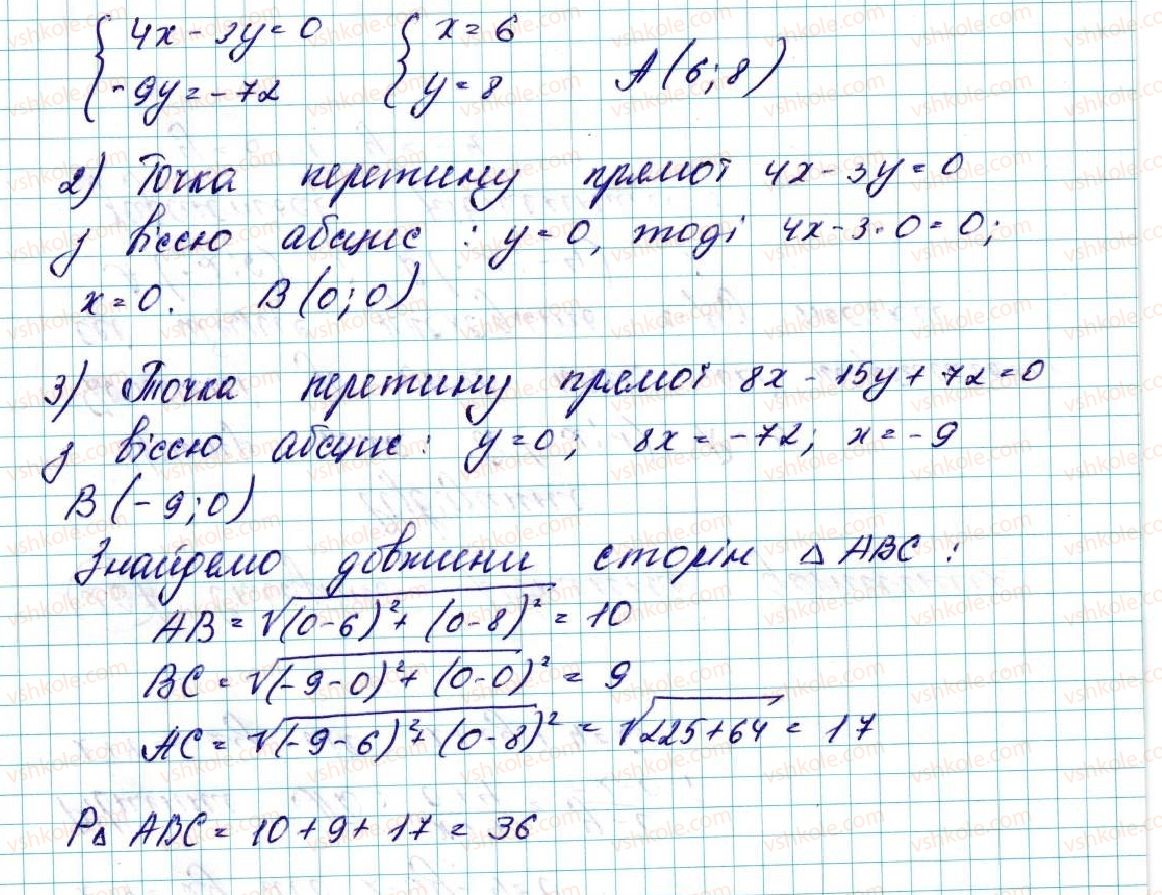 { 4x - 3y = 0 { x = 6
{ -9y = -72 { y = 8 A (6; 8)
2) Точка перетину прямої 4x - 3y = 0
з віссю абсцис : y = 0, тоді 4x - 3·0 = 0;
x = 0. B (0; 0)
3) Точка перетину прямої 8x - 15y + 72 = 0
з віссю абсцис : y = 0; 8x = -72; x = -9
B (-9; 0)
Знайдемо довжини сторін △ ABC :
AB = √((0-6)² + (0-8)²) = 10
BC = √((-9-0)² + (0-0)²) = 9
AC = √((-9-6)² + (0-8)²) = √(225+64) = 17
P△ ABC = 10 + 9 + 17 = 36